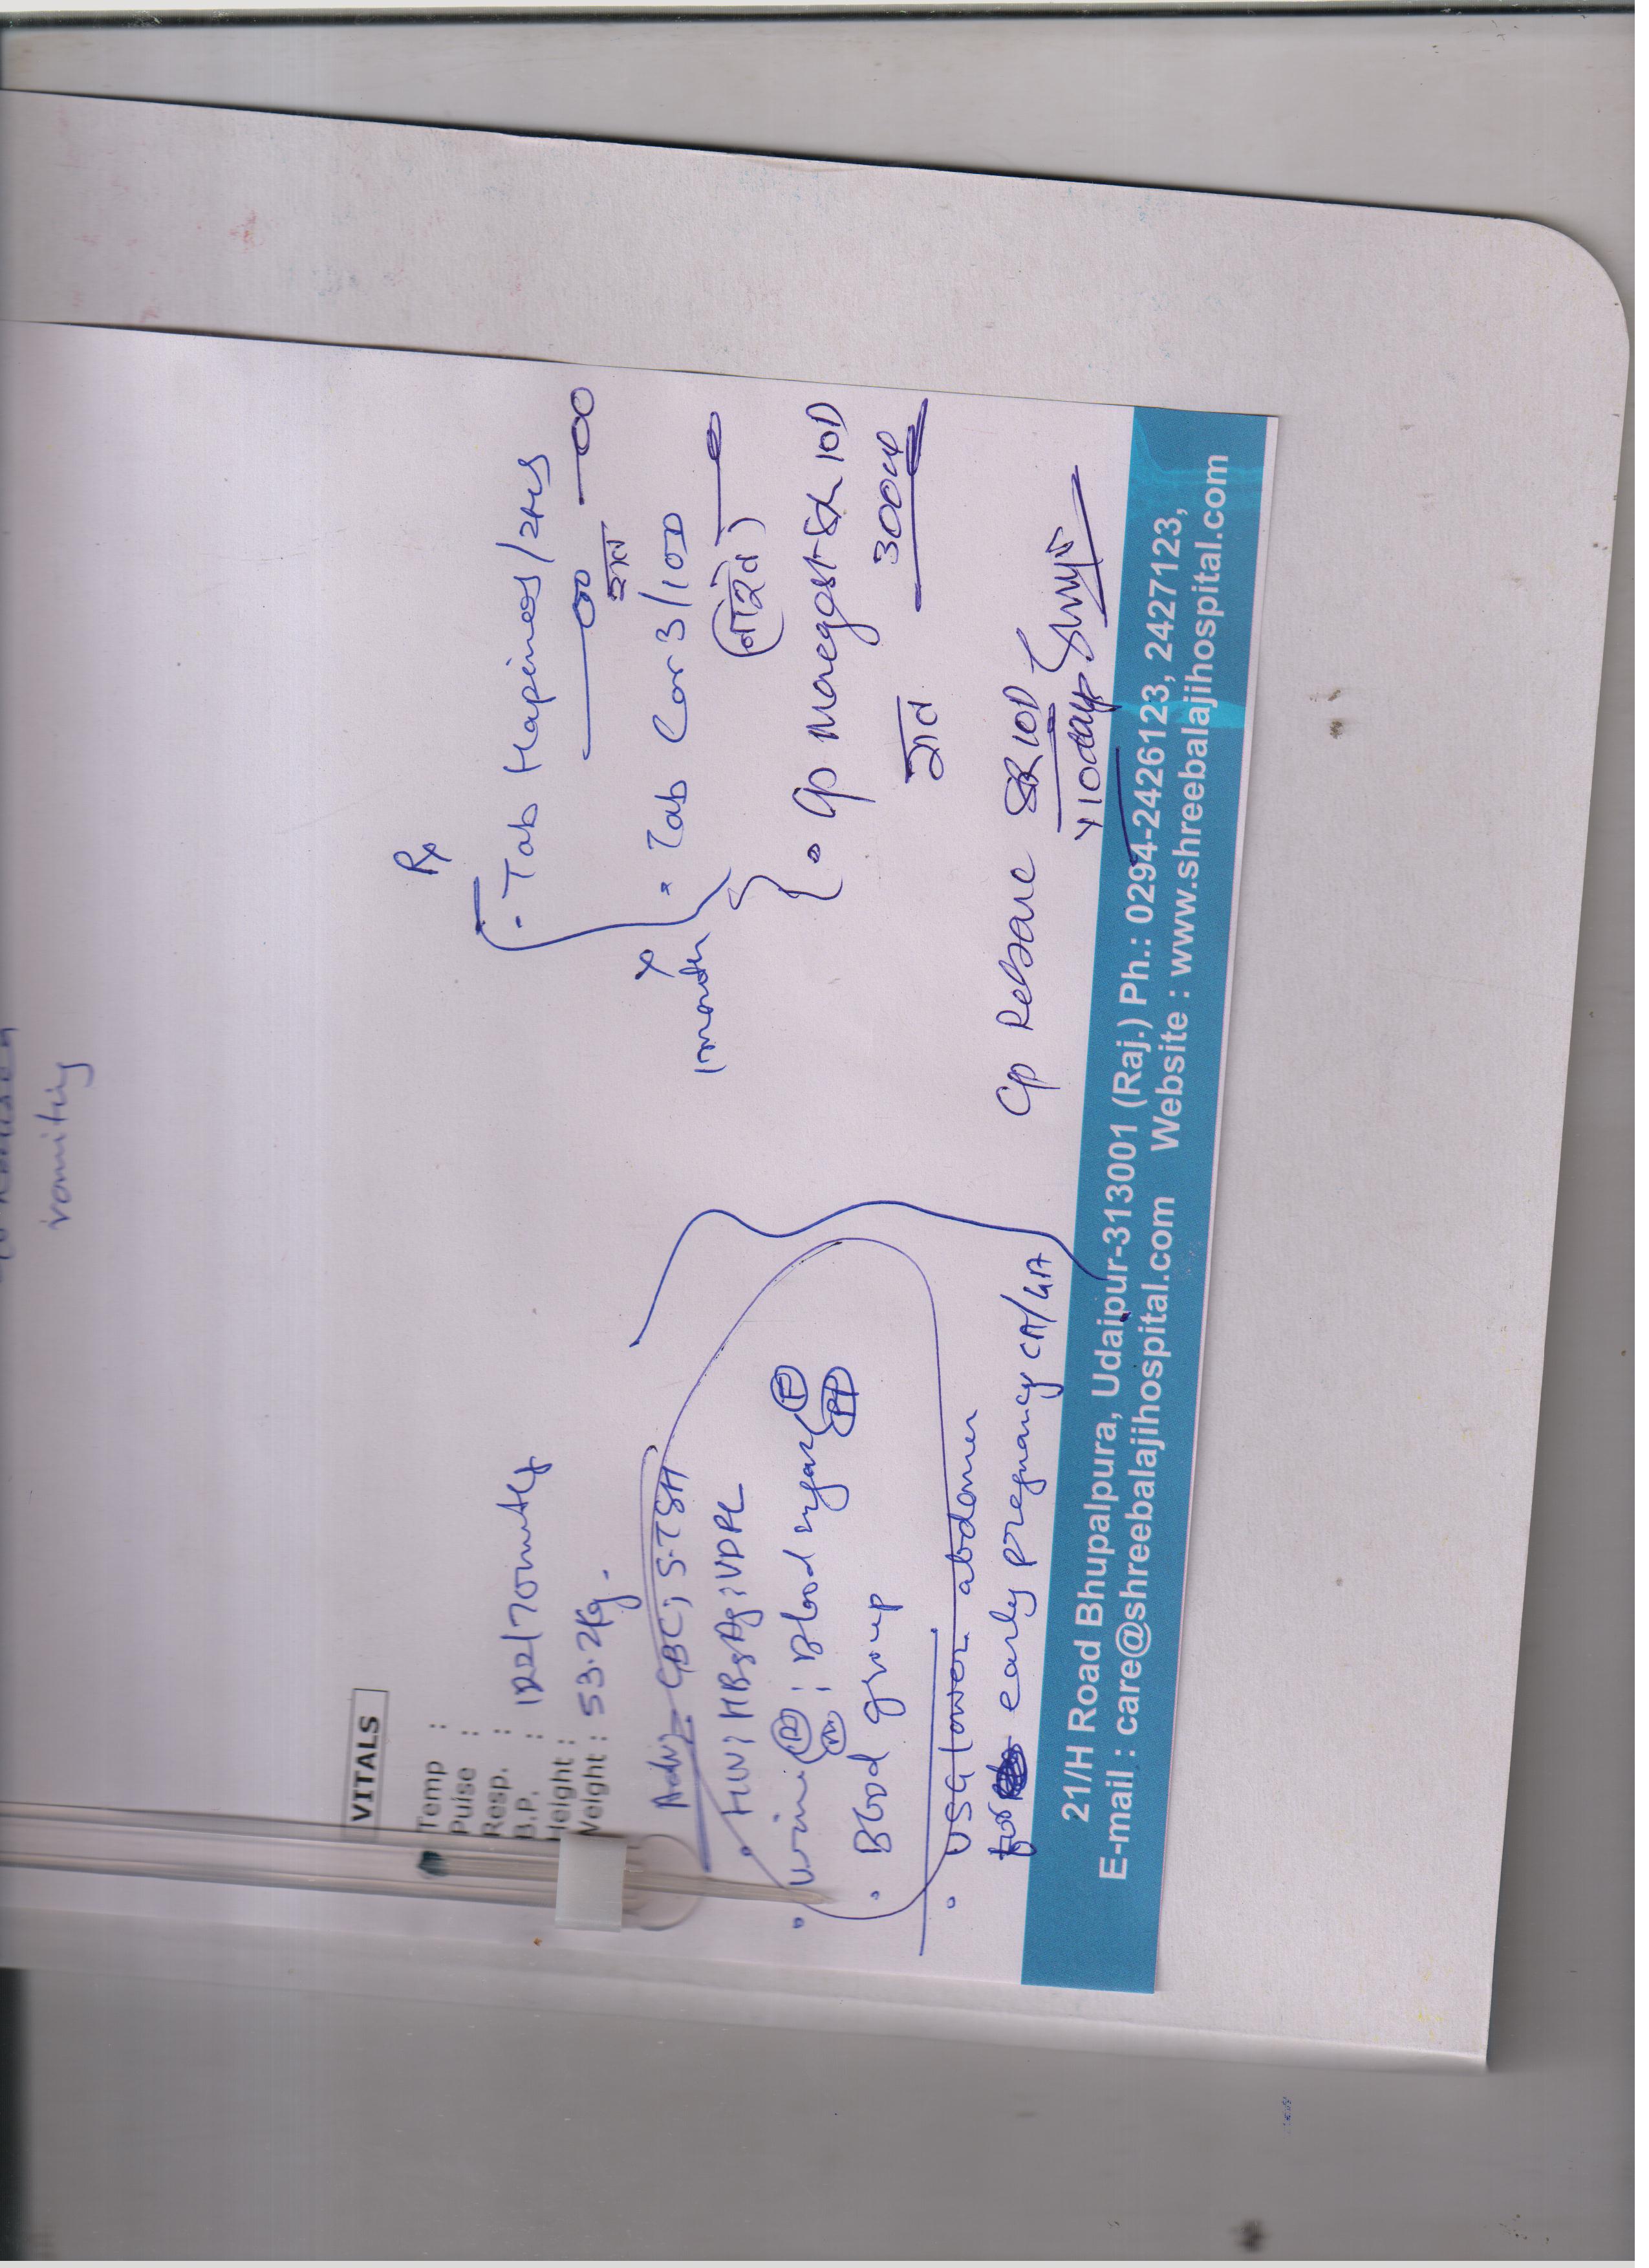 vomiting
VITALS
Temp :
Pulse :
Resp. :
B.P. : 122/70mmHg
Height :
Weight : 53.2kg.
Adv CBC; S.TSH
HIV; HBsAg; VDRL
Urine R M ; Blood sugar F PP
Blood group
USG lower abdomen
for early pregnancy CA/GA
Rx
Tab Hapiness / 2HS
00 00
रात
Tab Cor 3 / 1OD
1 month
Cp Moregest SR 1OD
300
रात
Cp Rebane SR 1OD
x 10days
21/H Road Bhupalpura, Udaipur-313001 (Raj.) Ph.: 0294-2426123, 2427123,
E-mail : care@shreebalajihospital.com Website : www.shreebalajihospital.com